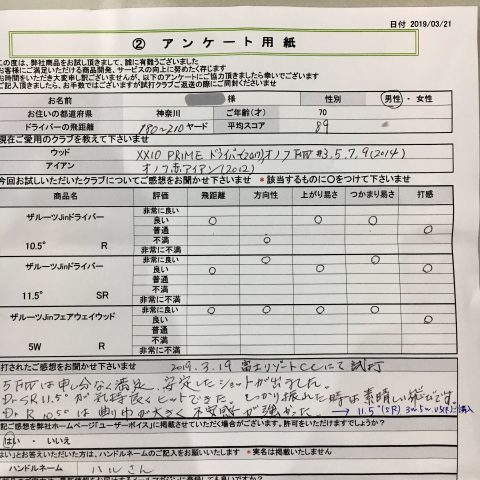 日付 2019/03/21
② アンケート用紙
この度は、弊社商品をお試し頂きまして、誠に有難うございました
お客様にご満足いただける商品開発、サービスの向上に努めたく存じます
お時間をいただき大変申し訳ございませんが、以下のアンケートにご協力頂きましたら幸いでございます
ご記入頂きましたら、お手数ではございますが試打クラブご返送の際にご同封くださいませ
お名前 様 性別 男性・女性
お住いの都道府県 神奈川 ご年齢(才) 70
ドライバーの飛距離 180~210 ヤード 平均スコア 89
現在ご愛用のクラブを教えて下さいませ
ウッド XXIO PRIME ドライバー(2017)オノフFW #3.5.7.9(2014)
アイアン オノフ赤アイアン(2012)
今回お試しいただいたクラブについてご感想をお聞かせ下さいませ *該当するものに○をつけて下さいませ
商品名 評価 飛距離 方向性 上がり易さ つかまり易さ 打感
ザルーツJinドライバー
10.5° R
非常に良い
良い ○ ○ ○
普通 ○
不満 ○
非常に不満
ザルーツJinドライバー
11.5° SR
非常に良い ○ ○
良い ○ ○ ○
普通
不満
非常に不満
ザルーツJinフェアウェイウッド
5W R
非常に良い ○ ○ ○ ○
良い ○
普通
不満
非常に不満
打されたご感想をお聞かせ下さいませ 2019.3.19 富士リゾートCCにて試打
5FWは申し分なく満足。安定したショットが出ました。
Dr SR 11.5°が気持良くヒットできた。しっかり振れた時は素晴しい
Dr R 10.5°は曲りが大きく不安感が強かった。 → 11.5°(SR) 3w 5w 購入
記ご感想を弊社ホームページ「ユーザーボイス」に掲載させていただく場合がございます。許可をいただけますでしょうか?
はい ・ いいえ
はい」とお答えいただいた方は、ハンドルネームのご記入をお願いいたします *実名は掲載いたしません
ハンドルネーム ハルさん